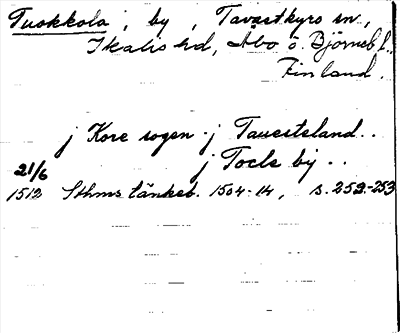 Tuokkola, by, Tavastkyro sn,
Ikalis hd, Åbo o. Björneb. l.,
Finland.
j Kore sogen j Tauesteland..
j Tocle by..
21/6
1512 Sthms tänkeb. 1504-14, s. 252-253